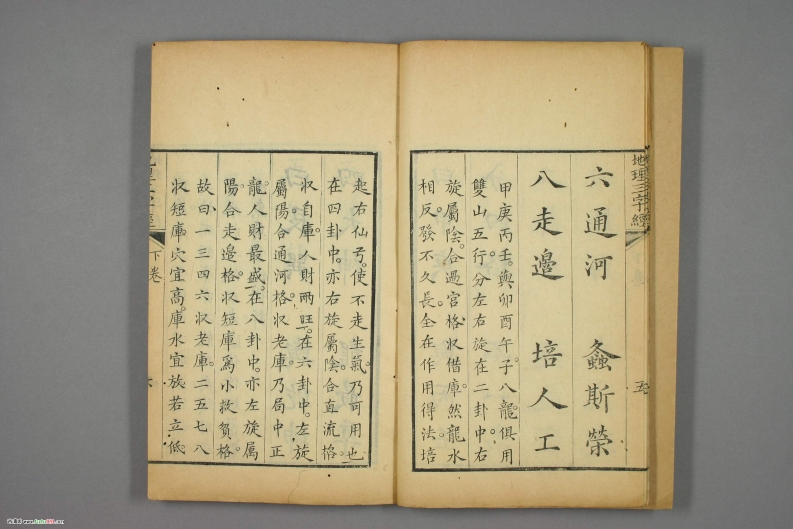 地理三字經
五
六通河 螽斯榮
八走邊 培人工
甲庚丙壬。與卯酉午子。八龍俱用
雙山五行分左右旋在二卦中。右
旋屬陰。合過宮格。収借庫。然龍水
相反。發不久長。全在作用得法。培
起右仙弓。使不走生氣。乃可用也
在四卦中。亦右旋屬陰。合直流格。
収自庫。人財兩旺。在六卦中。左旋
屬陽合通河格。収老庫。乃局中正
龍。人財最盛。在八卦中。亦左旋屬
陽。合走邊格。収短庫爲小救貧格
故曰一三四六収老庫。二五七八
収短庫穴宜高。庫水宜放若立低
下卷
六